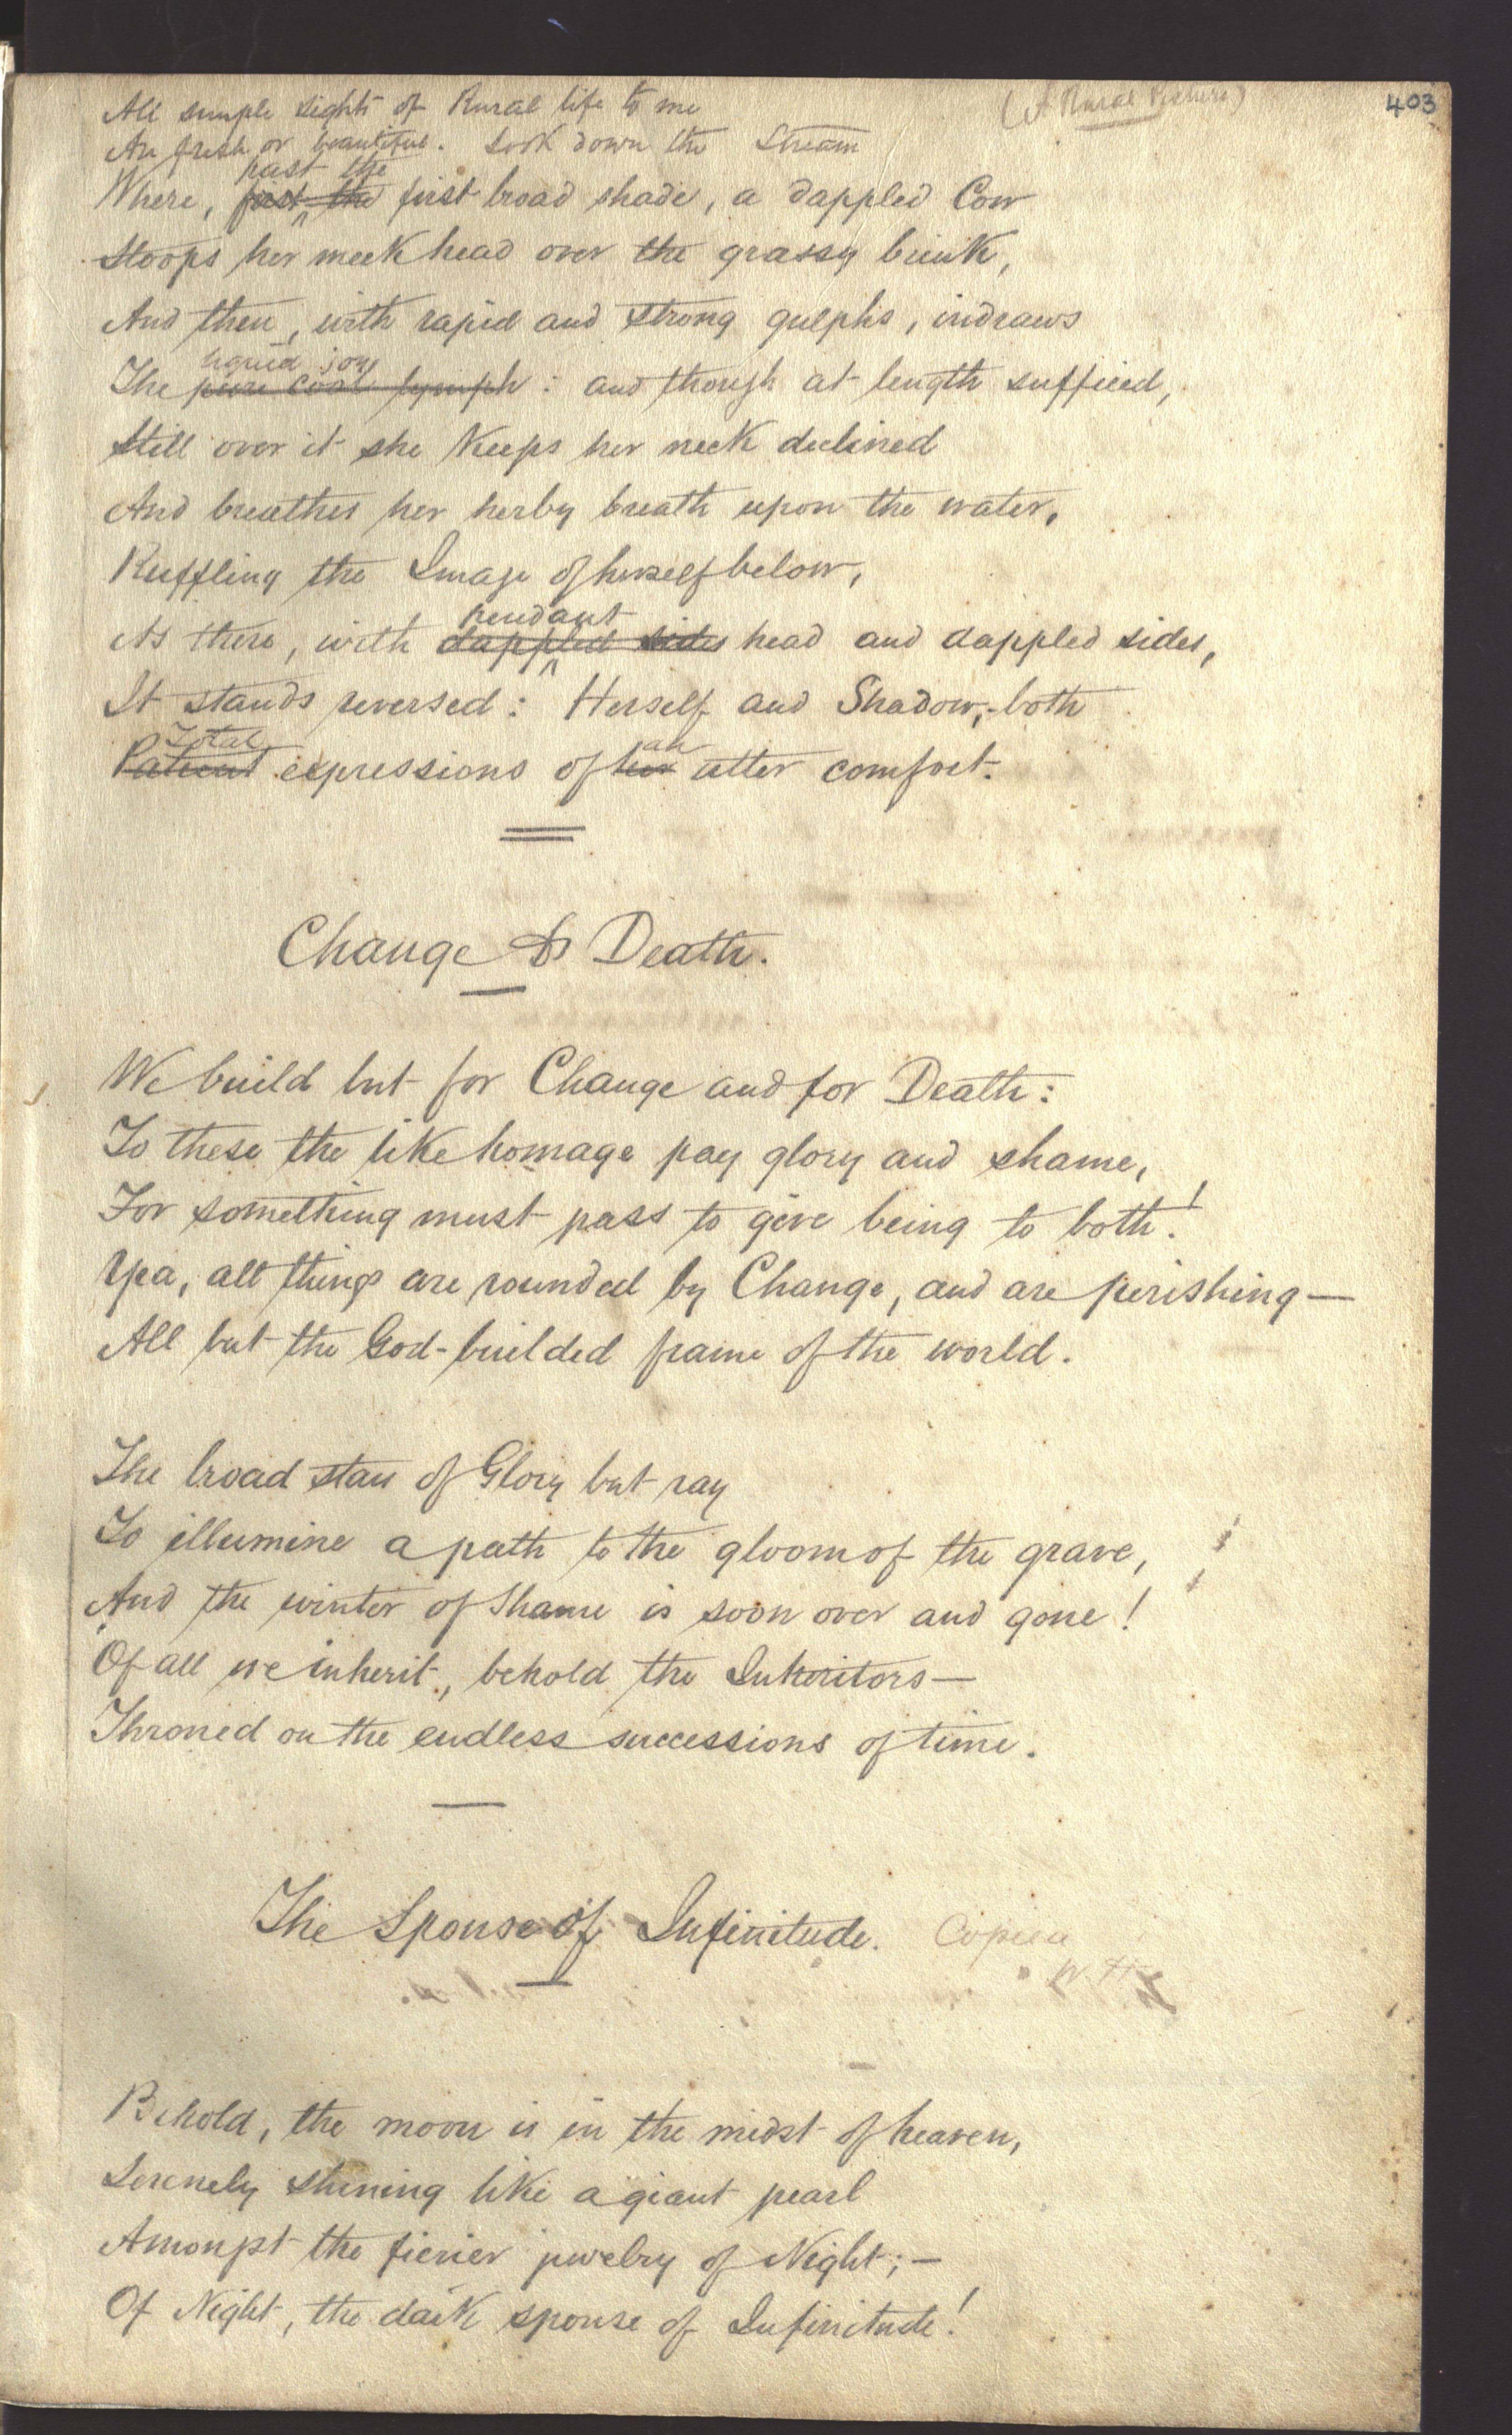 403
(A Rural Picture)
All simple sights of Rural life to me
Are fresh or beautiful. Look down the Stream
past the
Where, first the first broad shade, a dappled Cow
Stoops her meek head over the grassy brink,
And then, with rapid and strong gulphs, indraws
liquid joy
The pure cool lymph: and though at length sufficed,
Still over it she keeps her neck declined
And breathes her herby breath upon the water,
Ruffling the Image of herself below,
pendant
As there, with dappled sides head and dappled sides,
It stands reversed: Herself and Shadow,-both
Total an
Patient expressions of her utter comfort.
Change & Death.
We build but for Change and for Death:
To these the like homage pay glory and shame,
For something must pass to give being to both!
Yea, all things are rounded by Change, and are perishing—
All but the God-builded frame of the world.
The broad stars of Glory but ray
To illumine a path to the gloom of the grave,
And the winter of Shame is soon over and gone!
Of all we inherit, behold the Inheritors—
Throned on the endless successions of time.
The Spouse of Infinitude. Copied
Behold, the moon is in the midst of heaven,
Serenely shining like a giant pearl
Amongst the fierier jewelry of Night;—
Of Night, the dark spouse of Infinitude!